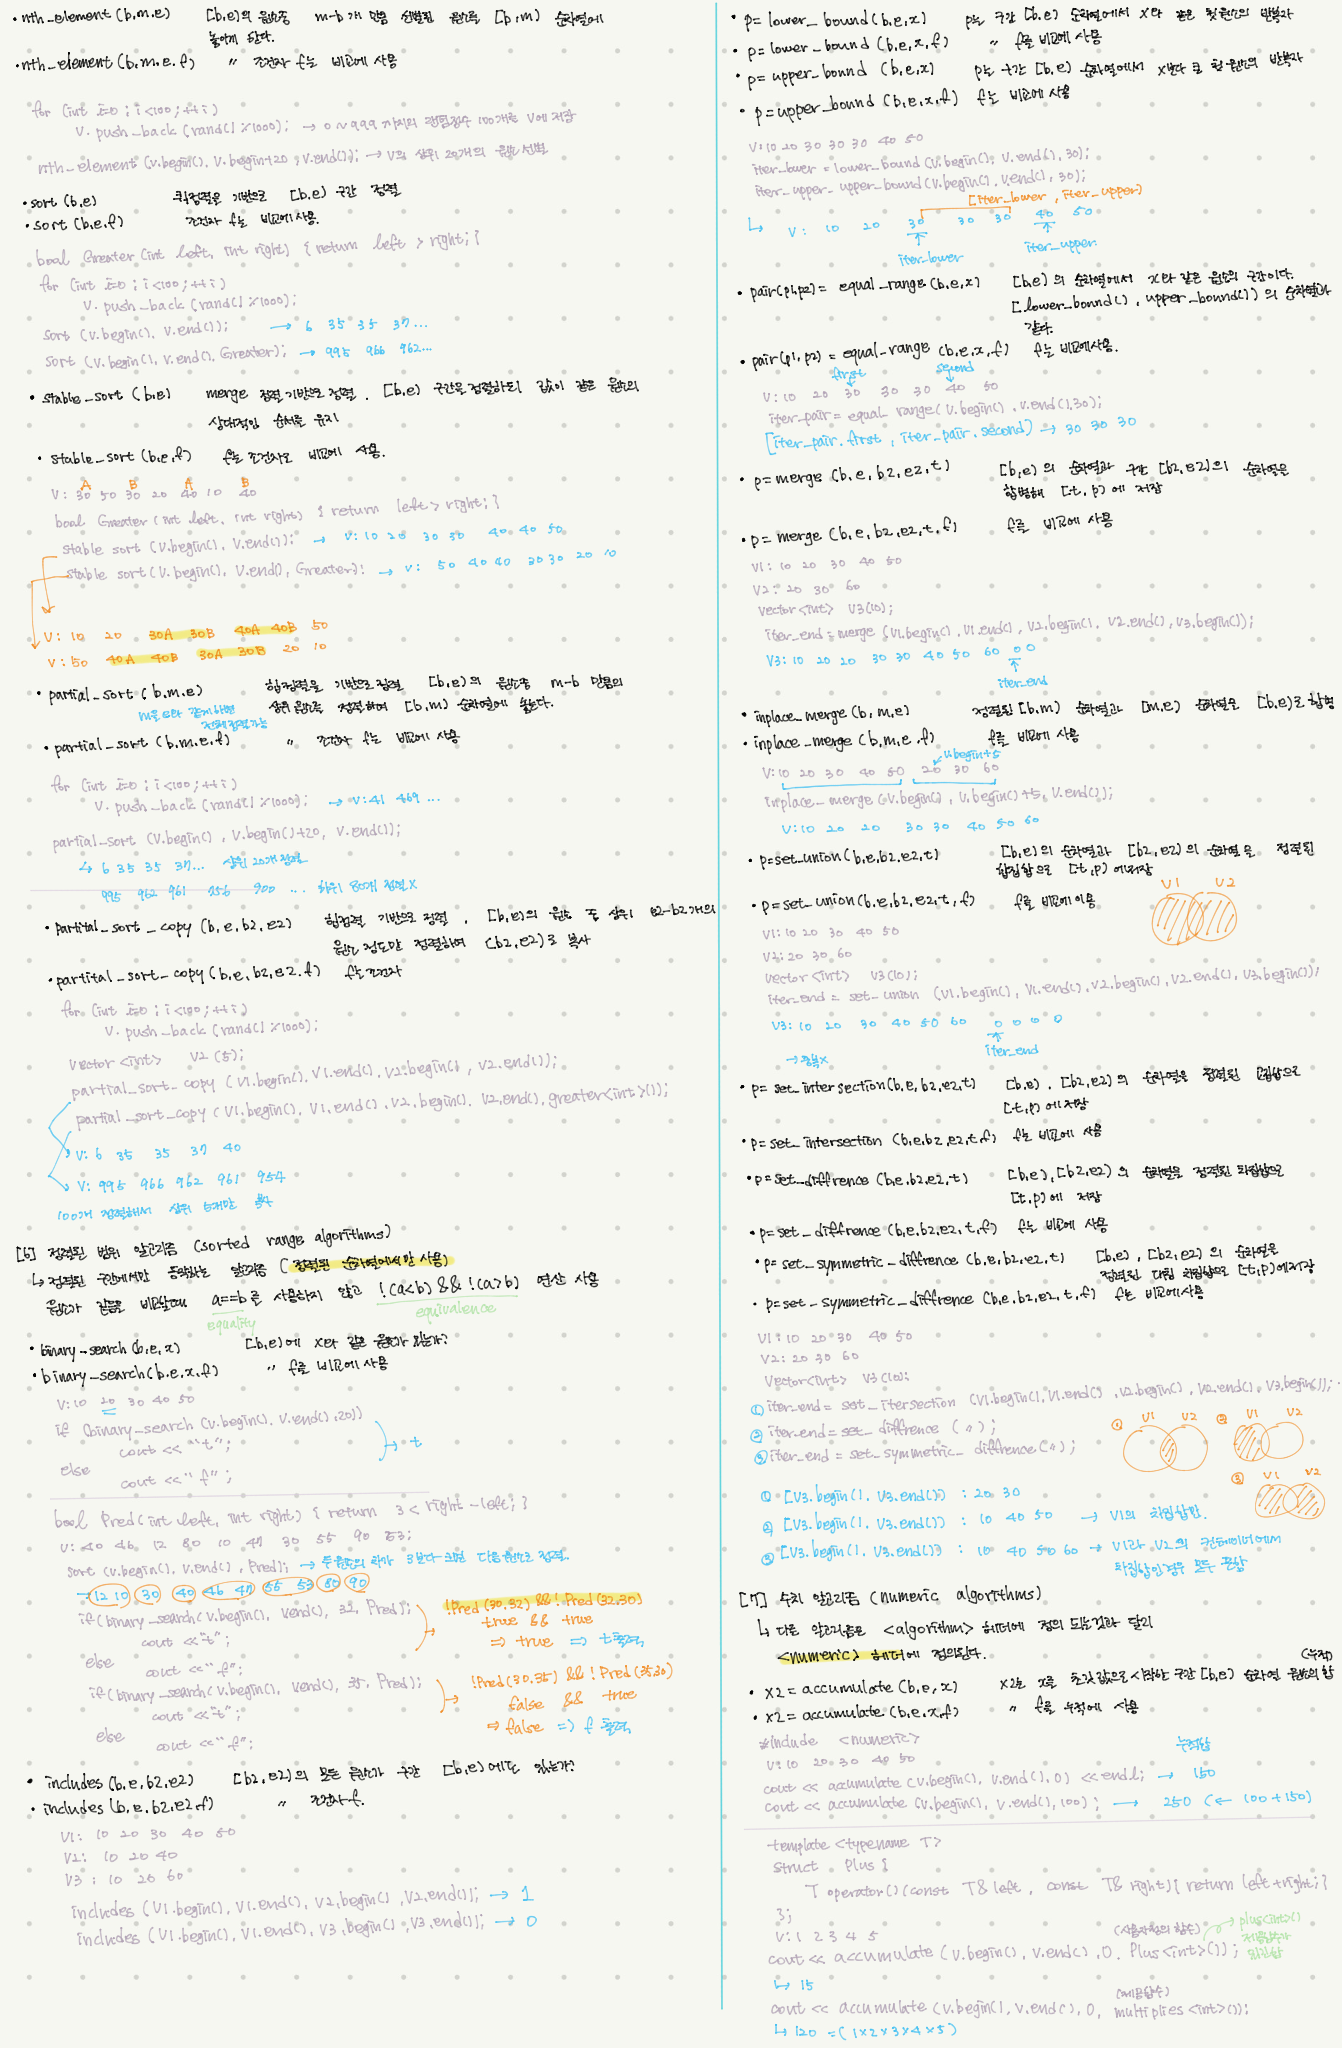 • nth_element (b,m,e) [b,e)의 원소중 m-b개 만큼 선별된 원소를 [b,m) 순차열에
놓이게 한다.
• nth_element (b,m,e,f) 〃 조건자 f는 비교에 사용
for (int i=0 ; i<100 ; ++i)
V. push_back (rand() % 1000); → 0 ~ 999 까지의 랜덤정수 100개를 V에 저장
nth_element (v.begin(), v.begin+20, v.end()); → V의 상위 20개의 원소 선별
• sort (b,e) 퀵정렬을 기반으로 [b,e) 구간 정렬
• sort (b,e,f) 조건자 f는 비교에 사용.
bool Greater (int left, int right) { return left > right; }
for (int i=0 ; i<100 ; ++i)
V. push_back (rand() % 1000);
sort (v.begin(), v.end()); → 6 35 35 37 ...
sort (v.begin(), v.end(), Greater); → 995 966 962...
• stable_sort (b,e) merge 정렬 기반으로 정렬. [b,e) 구간을 정렬하되 값이 같은 원소의
상대적인 순서를 유지
• stable_sort (b,e,f) f는 조건자로 비교에 사용.
A B A B
V: 30 50 30 20 40 10 40
bool Greater (int left, int right) { return left > right; }
stable sort (v.begin(), v.end()); → V: 10 20 30 30 40 40 50
stable sort (v.begin(), v.end(), Greater); → V: 50 40 40 30 30 20 10
V: 10 20 30A 30B 40A 40B 50
V: 50 40A 40B 30A 30B 20 10
• partial_sort (b,m,e) 힙정렬을 기반으로 정렬 [b,e)의 원소중 m-b 만큼의
상위 원소를 정렬하여 [b,m) 순차열에 놓는다.
m을 e와 같게 하면
전체정렬가능
• partial_sort (b,m,e,f) 〃 조건자 f는 비교에 사용
for (int i=0 ; i<100 ; ++i)
V. push_back (rand() % 1000); → V: 41 469 ...
partial_sort (v.begin() , v.begin()+20, v.end());
↳ 6 35 35 37... 상위 20개 정렬
995 962 961 256 900 ... 하위 80개 정렬X
• partital_sort_copy (b,e,b2,e2) 힙정렬 기반으로 정렬, [b,e)의 원소 중 상위 e2-b2개의
원소 정도만 정렬하여 [b2,e2)로 복사
• partital_sort_copy (b,e,b2,e2,f) f는 조건자
for (int i=0 ; i<100 ; ++i)
V. push_back (rand() % 1000);
vector <int> V2 (5);
partial_sort_copy (V1.begin(), V1.end(), V2.begin(), V2.end());
partial_sort_copy (V1.begin(), V1.end(), V2.begin(), V2.end(), greater<int>());
V: 6 35 35 37 40
V: 995 966 962 961 954
100개 정렬해서 상위 5개만 복사
[6] 정렬된 범위 알고리즘 (sorted range algorithms)
↳ 정렬된 구간에서만 동작하는 알고리즘 (정렬된 순차열에서만 사용)
원소가 같음을 비교할때 a==b를 사용하지 않고 !(a<b) && !(a>b) 연산 사용
equality equivalence
• binary-search (b,e,x) [b,e)에 x와 같은 원소가 있는가?
• binary_search (b,e,x,f) 〃 f를 비교에 사용
V: 10 20 30 40 50
if (binary_search (v.begin(), v.end(), 20))
cout << "t";
else
cout << "f";
→ t
bool Pred (int left, int right) { return 3 < right - left; }
V: 40 46 12 80 10 47 30 55 90 53;
sort (v.begin(), v.end(), Pred); → 두원소의 차가 3보다 크면 다음원소로 정렬.
→ 12 10 30 40 46 47 55 53 80 90
if (binary_search (v.begin(), v.end(), 32, Pred);
cout << "t";
else
cout << "f";
!Pred (30,32) && !Pred (32,30)
true && true
⇒ true ⇒ t출력
if (binary_search (v.begin(), v.end(), 35, Pred);
cout << "t";
else
cout << "f";
!Pred (30,35) && !Pred (35,30)
false && true
⇒ false ⇒ f 출력
• includes (b,e,b2,e2) [b2,e2)의 모든 원소가 구간 [b,e)에도 있는가?
• includes (b,e,b2,e2,f) 〃 조건자 f.
V1: 10 20 30 40 50
V2: 10 20 40
V3 : 10 20 60
includes (V1.begin(), V1.end(), V2.begin(), V2.end()); → 1
includes (V1.begin(), V1.end(), V3.begin(), V3.end()); → 0
• p= lower_bound (b,e,x) p는 구간 [b,e) 순차열에서 x와 같은 첫원소의 반복자
• p= lower_bound (b,e,x,f) 〃 f를 비교에 사용
• p= upper_bound (b,e,x) p는 구간 [b,e) 순차열에서 x보다 큰 첫 원소의 반복자
• p= upper_bound (b,e,x,f) f는 비교에 사용
V: 10 20 30 30 30 40 50
iter_lower = lower_bound (v.begin(), v.end(), 30);
iter_upper_upper_bound (v.begin(), v.end(), 30);
[iter_lower , iter_upper)
↳ V: 10 20 30 30 30 40 50
iter_lower iter_upper
• pair(p1,p2) = equal_range (b,e,x) [b,e)의 순차열에서 x와 같은 원소의 구간이다.
[lower_bound(), upper_bound())의 순차열과
같다.
• pair(p1, p2) = equal_range (b,e,x,f) f는 비교에사용.
first second
V: 10 20 30 30 30 40 50
iter_pair = equal range (v.begin(), v.end(),30);
[iter_pair.first , iter_pair.second) → 30 30 30
• p= merge (b,e, b2,e2,t) [b,e) 의 순차열과 구간 [b2,e2)의 순차열을
합병해 [t,p) 에 저장
• p= merge (b,e, b2,e2,t,f) f를 비교에 사용
V1: 10 20 30 40 50
V2: 20 30 60
vector <int> V3(10);
iter_end = merge (V1.begin(), V1.end(), V2.begin(), V2.end(), V3.begin());
V3: 10 20 20 30 30 40 50 60 0 0
iter_end
• inplace_merge (b, m,e) 정렬된 [b,m) 순차열과 [m,e) 순차열을 [b,e)로 합병
• inplace_merge (b,m,e,f) f를 비교에 사용
v.begin+5
V: 10 20 30 40 50 20 30 60
inplace_merge (v.begin(), v.begin()+5, v.end());
V: 10 20 20 30 30 40 50 60
• p=set_union (b,e,b2,e2,t) [b,e)의 순차열과 [b2,e2)의 순차열을 정렬된
합집합으로 [t,p)에저장
• p=set_union (b,e,b2,e2,t,f) f를 비교에 이용
V1 V2
V1: 10 20 30 40 50
V2: 20 30 60
vector <int> V3 (10);
iter_end = set_union (V1.begin(), V1.end(), V2.begin(), V2.end(), V3.begin());
V3: 10 20 30 40 50 60 0 0 0 0
→ 중복X iter_end
• p= set_intersection (b,e, b2,e2,t) [b,e), [b2,e2)의 순차열을 정렬된 교집합으로
[t,p) 에저장
• p= set_intersection (b,e,b2,e2,t,f) f는 비교에 사용
• p= set_diffrence (b,e,b2,e2,t) [b,e), [b2,e2)의 순차열을 정렬된 차집합으로
[t,p)에 저장
• p= set_diffrence (b,e,b2,e2,t,f) f는 비교에 사용
• p= set_symmetric_diffrence (b,e,b2,e2,t) [b,e), [b2,e2)의 순차열을
정렬된 대칭 차집합으로 [t,p)에저장
• p= set_symmetric_diffrence (b,e,b2,e2,t,f) f는 비교에사용
V1: 10 20 30 40 50
V2: 20 30 60
Vector<int> V3 (10);
① iter_end = set_itersection (V1.begin(), V1.end(), V2.begin(), V2.end(), V3.begin());
② iter_end = set_diffrence (〃);
③ iter_end = set_symmetric_diffrence (〃);
① V1 V2 ② V1 V2
③ V1 V2
① [V3.begin(), V3.end()) : 20 30
② [V3.begin(), V3.end()) : 10 40 50 → V1의 차집합만.
③ [V3.begin(), V3.end()) : 10 40 50 60 → V1과 V2의 컨테이너에서
차집합인경우 모두 포함
[7] 수치 알고리즘 (numeric algorithms)
↳ 다른 알고리즘은 <algorithm> 헤더에 정의 되는것과 달리
<numeric> 헤더에 정의된다.
• x2 = accumulate (b,e,x) x2는 x를 초깃값으로 시작한 구간 [b,e) 순차열 원소의 합
(누적)
• x2 = accumulate (b,e,x,f) 〃 f를 누적에 사용
#include <numeric>
V: 10 20 30 40 50
누적합
cout << accumulate (v.begin(), v.end(), 0) << endl; → 150
cout << accumulate (v.begin(), v.end(), 100) ; → 250 (← 100+150)
template <typename T>
struct Plus {
T operator() (const T& left , const T& right) { return left+right; }
};
V: 1 2 3 4 5
(사용자정의 함수) plus<int>()
cout << accumulate (v.begin(), v.end(), 0, Plus<int>());
↳ 15
(제공함수)
cout << accumulate (v.begin(), v.end(), 0, multiplies <int>());
↳ 120 = (1×2×3×4×5)